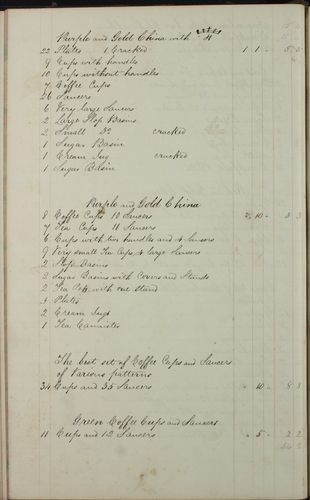 Purple and Gold China with
22 Plates 1 Cracked 1 1 - 5 3
9 Cups with handles
10 Cups without handles
7 Coffee Cups
26 Saucers
6 Very large Saucers
2 Large Slop Basins
2 Small Do cracked
1 Sugar Basin
1 Cream Jug cracked
1 Sugar Basin
Purple and Gold China
8 Coffee Cups 10 Saucers 10 - 3
7 Tea Cups 11 Saucers
6 Cups with two handles and 4 Saucers
9 Very small Tea Cups & large Saucers
2 Slop Basins
2 Sugar Basins with Covers and Stands
2 Tea Pots with one Stand
3 Plates
2 Cream Jugs
1 Tea Cannister
The best set of Coffee Cups and Saucers
of Various patterns
34 Cups and 35 Saucers - 10 - 8 3
Green Coffee Cups and Saucers
11 Cups and 12 Saucers - 5 - 2 2